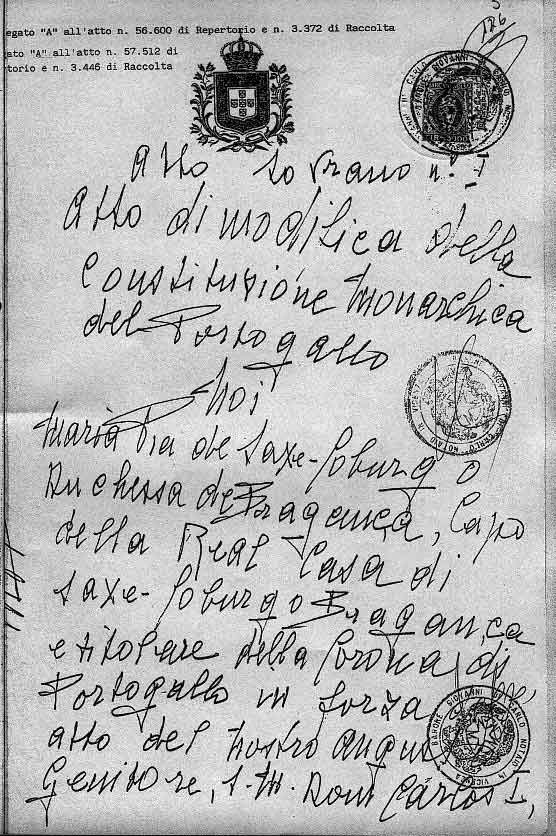 legato "A" all'atto n. 56.600 di Repertorio e n. 3.372 di Raccolta
gato "A" all'atto n. 57.512 di
torio e n. 3.446 di Raccolta
Atto Sovrano n. I
Atto di modifica della
Constituzione Monarchica
del Portogallo
Noi
Maria Pia de Saxe-Coburgo
Duchessa de Bragança, Capo
della Real Casa di
Saxe-Coburgo Bragança
e titolare della Corona di
Portogallo in forza
atto del Nostro Augus
Genitore, S.M. Dom Carlos I,
BARONE GIOVANNI DI CARLO NOTAIO IN VICENZA